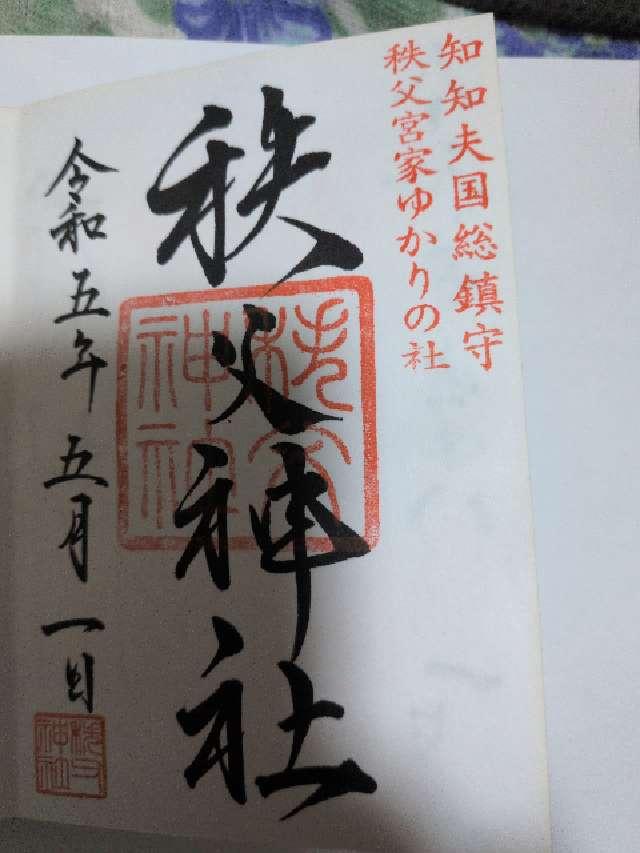 知知夫国総鎮守
秩父宮家ゆかりの社
秩父神社
秩父神社
令和五年五月一日
秩父神社